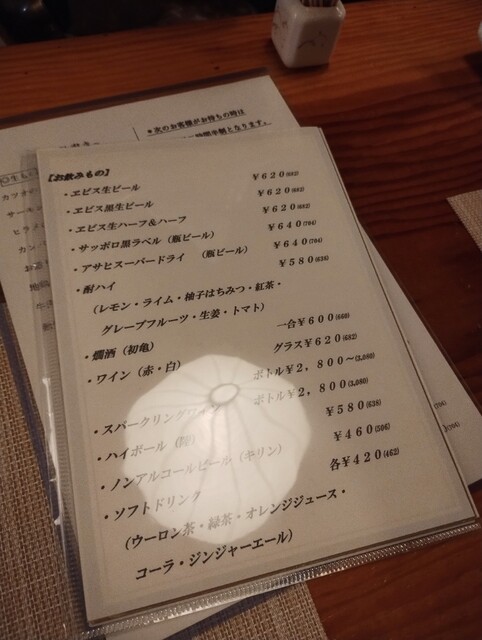 ＊次のお客様がお待ちの時は
時間半制となります。
【お飲みもの】
・ヱビス生ビール ￥620(682)
・ヱビス黒生ビール ￥620(682)
・ヱビス生ハーフ＆ハーフ ￥620(682)
・サッポロ黒ラベル（瓶ビール） ￥640(704)
・アサヒスーパードライ （瓶ビール） ￥640(704)
・酎ハイ ￥580(638)
（レモン・ライム・柚子はちみつ・紅茶・
グレープフルーツ・生姜・トマト）
・燗酒（初亀） 一合￥600(660)
・ワイン（赤・白） グラス￥620(682)
ボトル￥2，800～(3,080)
・スパークリングワイン ボトル￥2，800(3,080)
・ハイボール ￥580(638)
・ノンアルコールビール（キリン） ￥460(506)
・ソフトドリンク 各￥420(462)
（ウーロン茶・緑茶・オレンジジュース・
コーラ・ジンジャーエール）